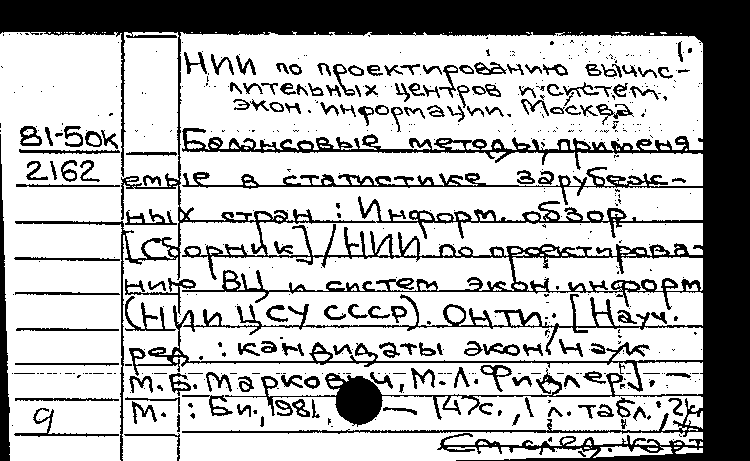 1.
НИИ по проектированию вычис-
лительных центров и систем
экон. информации. Москва.
81-50к Балансовые методы, применя
2162 емые в статистике зарубеж-
ных стран : Информ. обзор.
[Сборник] / НИИ по проектирова
нию ВЦ и систем экон. информ
(НИИ ЦСУ СССР). ОНТИ; [Науч.
ред. : кандидаты экон. наук
М.Б. Маркович, М.Л. Физлер]. —
9 М. : Б.и., 1981. — 147с., 1 л. табл.;
См. след. карт